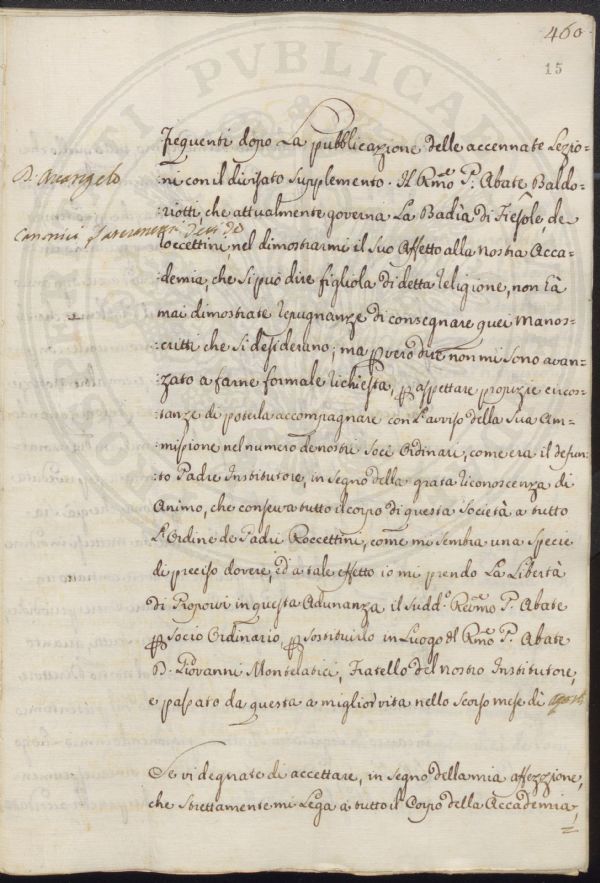 460
15
frequenti dopo La pubblicazione delle accennate Lezio=
:ni con il divisato Supplemento. Il Rmo P. Abate Baldo=
D. Arcangelo
:riotti, che attualmente governa La Badìa di Fiesole, de
Canonici
Roccettini, nel dimostrarmi il Suo Affetto alla nostra Acca=
:demia, che si può dire figliola di detta Religione, non hà
mai dimostrate repugnanze di consegnare quei Manos=
:critti che si desiderano; ma p vero dire non mi sono avan=
:zato a farne formale richiesta, p aspettare propizie circos=
:tanze di poterla accompagnare con L'avviso della Sua Am=
:missione nel numero de nostri Soci Ordinari, come era il defun=
:to Padre Institutore, in segno della grata riconoscenza di
Animo, che conserva tutto il corpo di questa Società a tutto
L'Ordine de Padri Roccettini, come mi sembra una specie
di preciso dovere, ed a tale effetto io mi prendo La Libertà
di Proporvi in questa Adunanza il Sudd.o Revmo P. Abate
p Socio Ordinario, p sostituirlo in Luogo del Rmo P. Abate
D. Giovanni Montelatici, Fratello del nostro Institutore,
e passato da questa a miglior vita nello scorso mese di
Se vi degnate di accettare, in segno della mia affezzione,
che strettamente mi Lega a tutto il Corpo della Accademia,